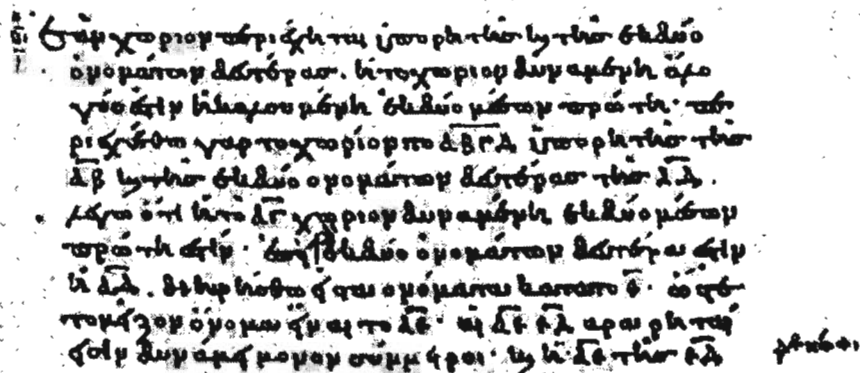 ἐὰν χωρίον περιέχηται ὑπὸ ῥητῆς καὶ τῆς ἐκ δύο
ὀνομάτων δευτέρας. ἡ τὸ χωρίον δυναμένη ἄλο
γός ἐστιν ἡ καλουμένη ἐκ δύο μέσων πρώτη· πε
ριεχέσθω γὰρ τὸ χωρίον τὸ αβγδ ὑπὸ ῥητῆς τῆς
αβ καὶ τῆς ἐκ δύο ὀνομάτων δευτέρας τῆς αδ.
λέγω ὅτι ἡ τὸ αγ χωρίον δυναμένη ἐκ δύο μέσων
πρώτη ἐστίν· ἐπεὶ γὰρ ἐκ δύο ὀνομάτων δευτέρα ἐστὶν
ἡ αδ. διῃρήσθω εἰς τὰ ὀνόματα κατὰ τὸ ε· ὥστε
τὸ μεῖζον ὄνομα εἶναι τὸ αε· αἱ αε εδ ἄρα ῥηταί
εἰσιν δυνάμει μόνον σύμμετροι· καὶ ἡ αε τῆς εδ